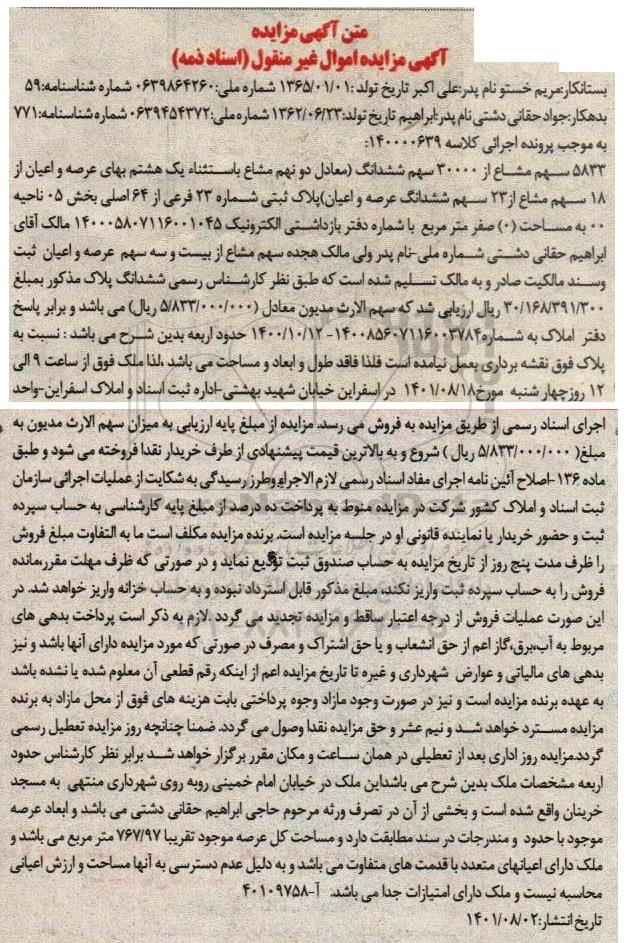 متن آگهی مزایده
آگهی مزایده اموال غیر منقول (اسناد ذمه)
بستانکار:مریم خستو نام پدر:علی اکبر تاریخ تولد:۱۳۶۵/۰۱/۰۱ شماره ملی:۰۶۳۹۸۶۴۲۶۰ شماره شناسنامه:۵۹
بدهکار:جواد حقانی دشتی نام پدر:ابراهیم تاریخ تولد:۱۳۶۲/۰۶/۲۳ شماره ملی:۰۶۳۹۴۵۴۳۷۲ شماره شناسنامه:۷۷۱
به موجب پرونده اجرائی کلاسه ۱۴۰۰۰۰۶۳۹:
۵۸۳۳ سهم مشاع از ۳۰۰۰۰ سهم ششدانگ (معادل دو نهم مشاع باستثناء یک هشتم بهای عرصه و اعیان از
۱۸ سهم مشاع از۲۳ سهم ششدانگ عرصه و اعیان)پلاک ثبتی شماره ۲۳ فرعی از ۶۴ اصلی بخش ۰۵ ناحیه
۰۰ به مساحت (۰) صفر متر مربع با شماره دفتر بازداشتی الکترونیک ۱۴۰۰۰۵۸۰۷۱۱۶۰۰۱۰۴۵ مالک آقای
ابراهیم حقانی دشتی شماره ملی-نام پدر ولی مالک هجده سهم مشاع از بیست و سه سهم عرصه و اعیان ثبت
وسند مالکیت صادر و به مالک تسلیم شده است که طبق نظر کارشناس رسمی ششدانگ پلاک مذکور بمبلغ
۳۰/۱۶۸/۳۹۱/۳۰۰ ریال ارزیابی شد که سهم الارث مدیون معادل (۵/۸۳۳/۰۰۰/۰۰۰ ریال) می باشد و برابر پاسخ
دفتر املاک به شماره۱۴۰۰۸۵۶۰۷۱۱۶۰۰۳۷۸۴- ۱۴۰۰/۱۰/۱۲ حدود اربعه بدین شرح می باشد : نسبت به
پلاک فوق نقشه برداری بعمل نیامده است فلذا فاقد طول و ابعاد و مساحت می باشد ،لذا ملک فوق از ساعت ۹ الی
۱۲ روزچهار شنبه مورخ۱۴۰۱/۰۸/۱۸ در اسفراین خیابان شهید بهشتی-اداره ثبت اسناد و املاک اسفراین-واحد
اجرای اسناد رسمی از طریق مزایده به فروش می رسد. مزایده از مبلغ پایه ارزیابی به میزان سهم الارث مدیون به
مبلغ( ۵/۸۳۳/۰۰۰/۰۰۰ ریال ) شروع و به بالاترین قیمت پیشنهادی از طرف خریدار نقدا فروخته می شود و طبق
ماده ۱۳۶-اصلاح آئین نامه اجرای مفاد اسناد رسمی لازم الاجراءوطرز رسیدگی به شکایت از عملیات اجرائی سازمان
ثبت اسناد و املاک کشور شرکت در مزایده منوط به پرداخت ده درصد از مبلغ پایه کارشناسی به حساب سپرده
ثبت و حضور خریدار یا نماینده قانونی او در جلسه مزایده است. برنده مزایده مکلف است ما به التفاوت مبلغ فروش
را ظرف مدت پنج روز از تاریخ مزایده به حساب صندوق ثبت تودیع نماید و در صورتی که ظرف مهلت مقرر،مانده
فروش را به حساب سپرده ثبت واریز نکند، مبلغ مذکور قابل استرداد نبوده و به حساب خزانه واریز خواهد شد. در
این صورت عملیات فروش از درجه اعتبار ساقط و مزایده تجدید می گردد .لازم به ذکر است پرداخت بدهی های
مربوط به آب،برق،گاز اعم از حق انشعاب و یا حق اشتراک و مصرف در صورتی که مورد مزایده دارای آنها باشد و نیز
بدهی های مالیاتی و عوارض شهرداری و غیره تا تاریخ مزایده اعم از اینکه رقم قطعی آن معلوم شده یا نشده باشد
به عهده برنده مزایده است و نیز در صورت وجود مازاد وجوه پرداختی بابت هزینه های فوق از محل مازاد به برنده
مزایده مسترد خواهد شد و نیم عشر و حق مزایده نقدا وصول می گردد. ضمنا چنانچه روز مزایده تعطیل رسمی
گردد،مزایده روز اداری بعد از تعطیلی در همان ساعت و مکان مقرر برگزار خواهد شد برابر نظر کارشناس حدود
اربعه مشخصات ملک بدین شرح می باشداین ملک در خیابان امام خمینی روبه روی شهرداری منتهی به مسجد
خرینان واقع شده است و بخشی از آن در تصرف ورثه مرحوم حاجی ابراهیم حقانی دشتی می باشد و ابعاد عرصه
موجود با حدود و مندرجات در سند مطابقت دارد و مساحت کل عرصه موجود تقریبا ۷۶۷/۹۷ متر مربع می باشد و
ملک دارای اعیانهای متعدد با قدمت های متفاوت می باشد و به دلیل عدم دسترسی به آنها مساحت و ارزش اعیانی
محاسبه نیست و ملک دارای امتیازات جدا می باشد. آ-۴۰۱۰۹۷۵۸
تاریخ انتشار:۱۴۰۱/۰۸/۰۲